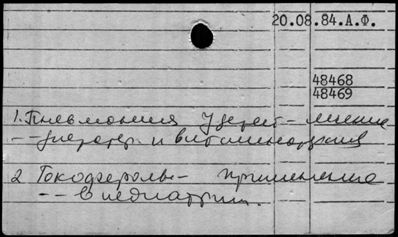 20.08.84.А.Ф.
48468
48469
1. Пневмония у детей - лечение
-"- и витаминотерапия
2. Токоферолы - применение
-"- в педиатрии.